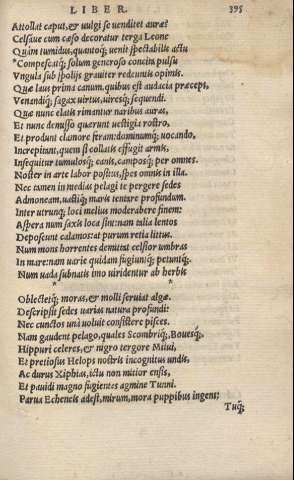 LIBER. 395
Attollat caput, & uulgi se uenditet auræ?
Celsaue cum cæso decoratur terga Leone
Quàm tumidus, quantoq; uenit spectabilis actu
*Compescatq; solum generoso concita pulsu
Vngula sub spolijs grauiter redeuntis opimis.
Quæ laus prima canum. quibus est audacia præceps,
Venandiq; sagax uirtus, uiresq; sequendi.
Quæ nunc elatis rimantur naribus auras,
Et nunc demisso quærunt uestigia rostro,
Et produnt clamore feram: dominumq; uocando,
Increpitant, quem si collatis effugit armis,
Insequitur tumulosq; canis, camposq; per omnes.
Noster in arte labor positus, spes omnis in illa.
Nec tamen in medias pelagi te pergere sedes
Admoneam, uastiq; maris tentare profundum.
Inter utrunq; loci melius moderabere finem:
Aspera num saxis loca sint: nam talia lentos
Deposcunt calamos: at purum retia litus.
Num mons horrentes demittat celsior umbras
In mare: nam uarie quidam fugiuntq; petuntq;.
Num uada subnatis imo uiridentur ab herbis
* *
Oblectetq; moras, & molli seruiat algæ.
Descripsit sedes uarias natura profundi:
Nec cunctos unà uoluit consistere pisces.
Nam gaudent pelago, quales Scombriq;, Bouesq;,
Hippuri celeres, & nigro tergore Milui,
Et pretiosus Helops nostris incognitus undis,
Ac durus Xiphias, ictu non mitior ensis,
Et pauidi magno fugientes agmine Tunni.
Parua Echeneis adest, mirum, mora puppibus ingens:
Tuq;